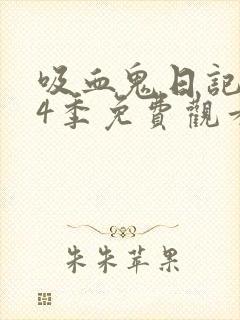 吸血鬼日記
4季免費觀看
朱朱苹果